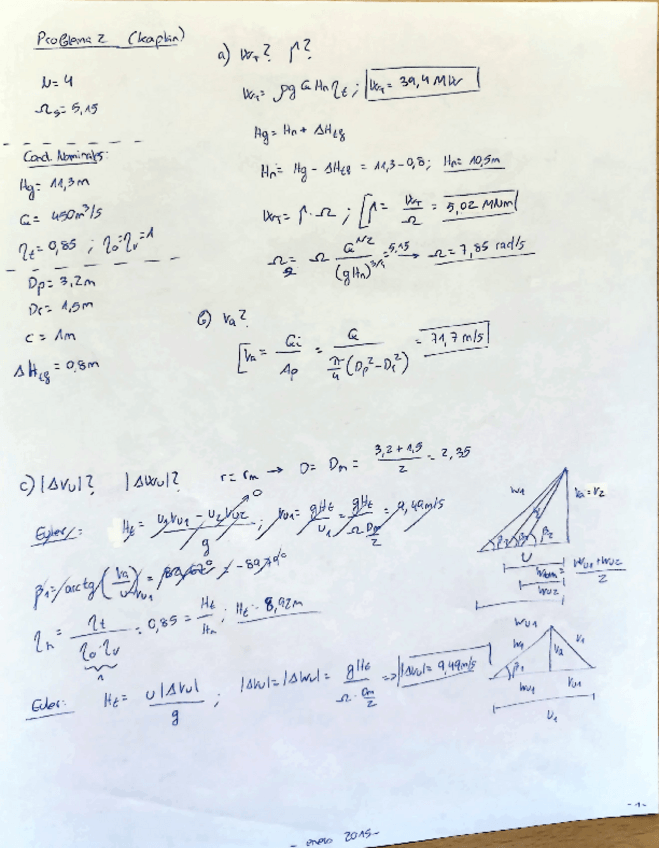 Problema 2 (Kaplan)
N = 4
Ωs = 5,15
Cond. Nominales:
Hg = 11,3 m
Q = 450 m³/s
ηt = 0,85 ; ηo = ηv = 1
Dp = 3,2 m
Dr = 1,5 m
C = 1 m
ΔHtg = 0,8 m
a) ẆT? Γ?
ẆT = ρgQHnηt ; ẆT = 39,4 MW
Hg = Hn + ΔHtg
Hn = Hg - ΔHtg = 11,3 - 0,8 ; Hn = 10,5 m
ẆT = Γ · Ω ; Γ = ẆT / Ω = 5,02 MNm
Ωs = Ω Q^1/2 / (gHn)^3/4 = 5,15 → Ω = 7,85 rad/s
b) va?
va = Qi / Ap = Q / (π/4 (Dp² - Dr²)) = 71,7 m/s
c) |ΔVu|? |ΔWu|? r = rm → D = Dm = (3,2 + 1,5) / 2 = 2,35
Euler: Ht = (u1Vu1 - u2Vu2) / g ; Vu1 = gHt / u1 = gHt / (Ω Dm/2) = 9,49 m/s
β1 = arctg (Va / u - Vu1) =
ηh = ηt / (ηo ηv) = 0,85 = Ht / Hn ; Ht = 8,92 m
1
Euler: Ht = u|ΔVu| / g ; |ΔVu| = |ΔWu| = gHt / (Ω · Dm/2) => |ΔVu| = 9,49 m/s
W1
Va = V2
β2
U
Wu1 + Wu2
2
Wu2
Wu1
W1
Va
V1
β1
Wu1
Vu1
U1
-1-
- enero 2015 -